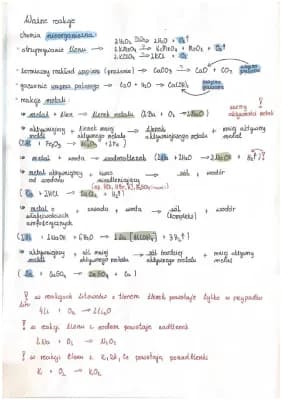 Ważne reakcje
chemia nieorganiczna
- otrzymywanie tlenu 2H₂O₂ → 2H₂O + O₂↑
2KMnO₄ → K₂MnO₄ + MnO₂ + O₂↑
2KClO₃ → 2KCl + 3O₂
- termiczny rozkład wapna (prażenie) CaCO₃ → CaO + CO₂
- gaszenie wapna palonego CaO + H₂O → Ca(OH)₂
- reakcje metali:
metal + tlen → tlenek metalu (2Ba + O₂ → 2BaO)
szereg aktywności metali
aktywniejszy metal + tlenek mniej aktywnego metalu → tlenek aktywniejszego metalu + mniej aktywny metal
(2Al + Fe₂O₃ → Al₂O₃ + 2Fe)
metal + woda → wodorotlenek (2Na + 2H₂O → 2NaOH + H₂↑)
metal aktywniejszy od wodoru + kwas nieutleniający → sól + wodór
(Ca + 2HCl → CaCl₂ + H₂↑)
metal o właściwościach amfoterycznych + zasada + woda → sól (kompleks) + wodór
(2Al + 2NaOH + 6H₂O → 2Na[Al(OH)₄] + 3H₂↑)
aktywniejszy metal + sól mniej aktywnego metalu → sól bardziej aktywnego metalu + mniej aktywny metal
(Zn + CuSO₄ → ZnSO₄ + Cu)
! w reakcjach litowców z tlenem tlenek powstaje tylko w przypadku litu
4Li + O₂ → 2Li₂O
! w reakcji tlenu z sodem powstaje nadtlenek
2Na + O₂ → Na₂O₂
! w reakcji tlenu z K, Rb, Cs powstają ponadtlenki
K + O₂ → KO₂